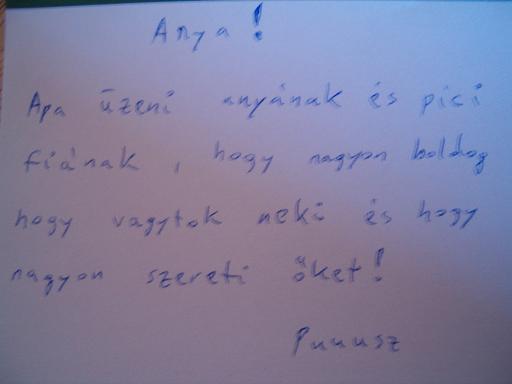 Anya!
Apa üzeni anyának és pici
fiának, hogy nagyon boldog
hogy vagytok neki és hogy
nagyon szereti őket!
Puuusz